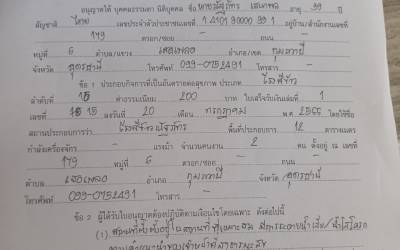 อนุญาตให้ บุคคลธรรมดา นิติบุคคล อายุ 59 ปี
สัญชาติ ไทย เลขประจำตัวประชาชนเลขที่ อยู่บ้าน/สำนักงานเลขที่
179 ตรอก/ซอย - ถนน -
หมู่ที่ 6 ตำบล/แขวง เสอเพลอ อำเภอ/เขต กุมภวาปี
จังหวัด อุดรธานี โทรศัพท์ 099-0752491 โทรสาร -
ข้อ 1 ประกอบกิจการที่เป็นอันตรายต่อสุขภาพ ประเภท โรงสีข้าว
ลำดับที่ 15 ค่าธรรมเนียม 200 บาท ใบเสร็จรับเงินเล่มที่ 1
เลขที่ 15 ลงวันที่ 20 เดือน กรกฎาคม พ.ศ. 2566 โดยใช้ชื่อ
สถานประกอบการว่า โรงสีข้าว พื้นที่ประกอบการ 12 ตารางเมตร
กำลังเครื่องจักร - แรงม้า จำนวนคนงาน 2 คน ตั้งอยู่ ณ เลขที่
179 หมู่ที่ 6 ตรอก/ซอย - ถนน -
ตำบล เสอเพลอ อำเภอ กุมภวาปี จังหวัด อุดรธานี
โทรศัพท์ 099-0752491 โทรสาร -
ข้อ 2 ผู้ได้รับใบอนุญาตต้องปฏิบัติตามเงื่อนไขโดยเฉพาะ ดังต่อไปนี้
(1)